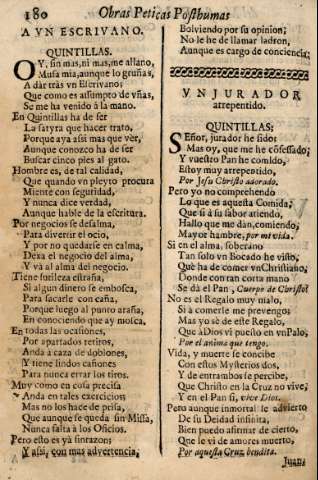 180 Obras Poeticas Posthumas
A VN ESCRIVANO.
QUINTILLAS.
OY, sin mas, ni mas, me allano,
Musa mia, aunque lo gruñas,
A dàr tràs vn Escrivano;
Que como es assumpto de vñas,
Se me ha venido à la mano.
En Quintillas ha de ser
La satyra que hacer trato,
Porque aya assi mas que vèr,
Aunque conozco ha de ser
Buscar cinco pies al gato.
Hombre es, de tal calidad,
Que quando vn pleyto procura
Miente con seguridad,
Y nunca dice verdad,
Aunque hable de la escritura.
Por negocios se desalma,
Para divertir el ocio,
Y por no quedarse en calma,
Dexa el negocio del alma,
Y và al alma del negocio.
Tiene sutileza estraña,
Si algun dinero se embosca,
Para sacarle con caña,
Porque luego al punto araña,
En conociendo que ay mosca.
En todas las ocasiones,
Por apartados retiros,
Anda à caza de doblones,
Y tiene lindos cañones
Para nunca errar los tiros.
Muy como en cosa precisa
Anda en tales exercicios;
Mas no los hace de prisa,
Que aunque se queda sin Missa,
Nunca falta à los Oficios.
Pero esto es yà sinrazon;
Y assi, con mas advertencia,
Bolviendo por su opinion;
No le he de llamar ladron,
Aunque es cargo de conciencia;
VN JURADOR
arrepentido.
QUINTILLAS;
Señor, jurador he sido;
Mas oy, que me he cõfessado;
Y vuestro Pan he comido,
Estoy muy arrepentido,
Por Jesu Christo adorado.
Pero yo no comprehendo
Lo que es aquesta Comida;
Que si à su sabor atiendo,
Hallo que me dàn, comiendo,
Mayor hambre, por mi vida.
Si en el alma, soberano
Tan solo vn Bocado he visto,
Què ha de comer vn Christiano,
Donde con tan corta mano
Se dà el Pan, Cuerpo de Christo!
No es el Regalo muy malo,
Si à comerle me prevengo;
Mas yo sè de este Regalo,
Que à Dios vì puesto en vn Palo,
Por el anima que tengo.
Vida, y muerte se concibe
Con estos Mysterios dos,
Y de entrambos se percibe,
Que Christo en la Cruz no vive;
Y en el Pan sì, vive Dios.
Pero aunque inmortal le advierto
De su Deidad infinita,
Bien puedo afirmar de cierto,
Que le vì de amores muerto,
Por aquesta Cruz bendita.
Juan;